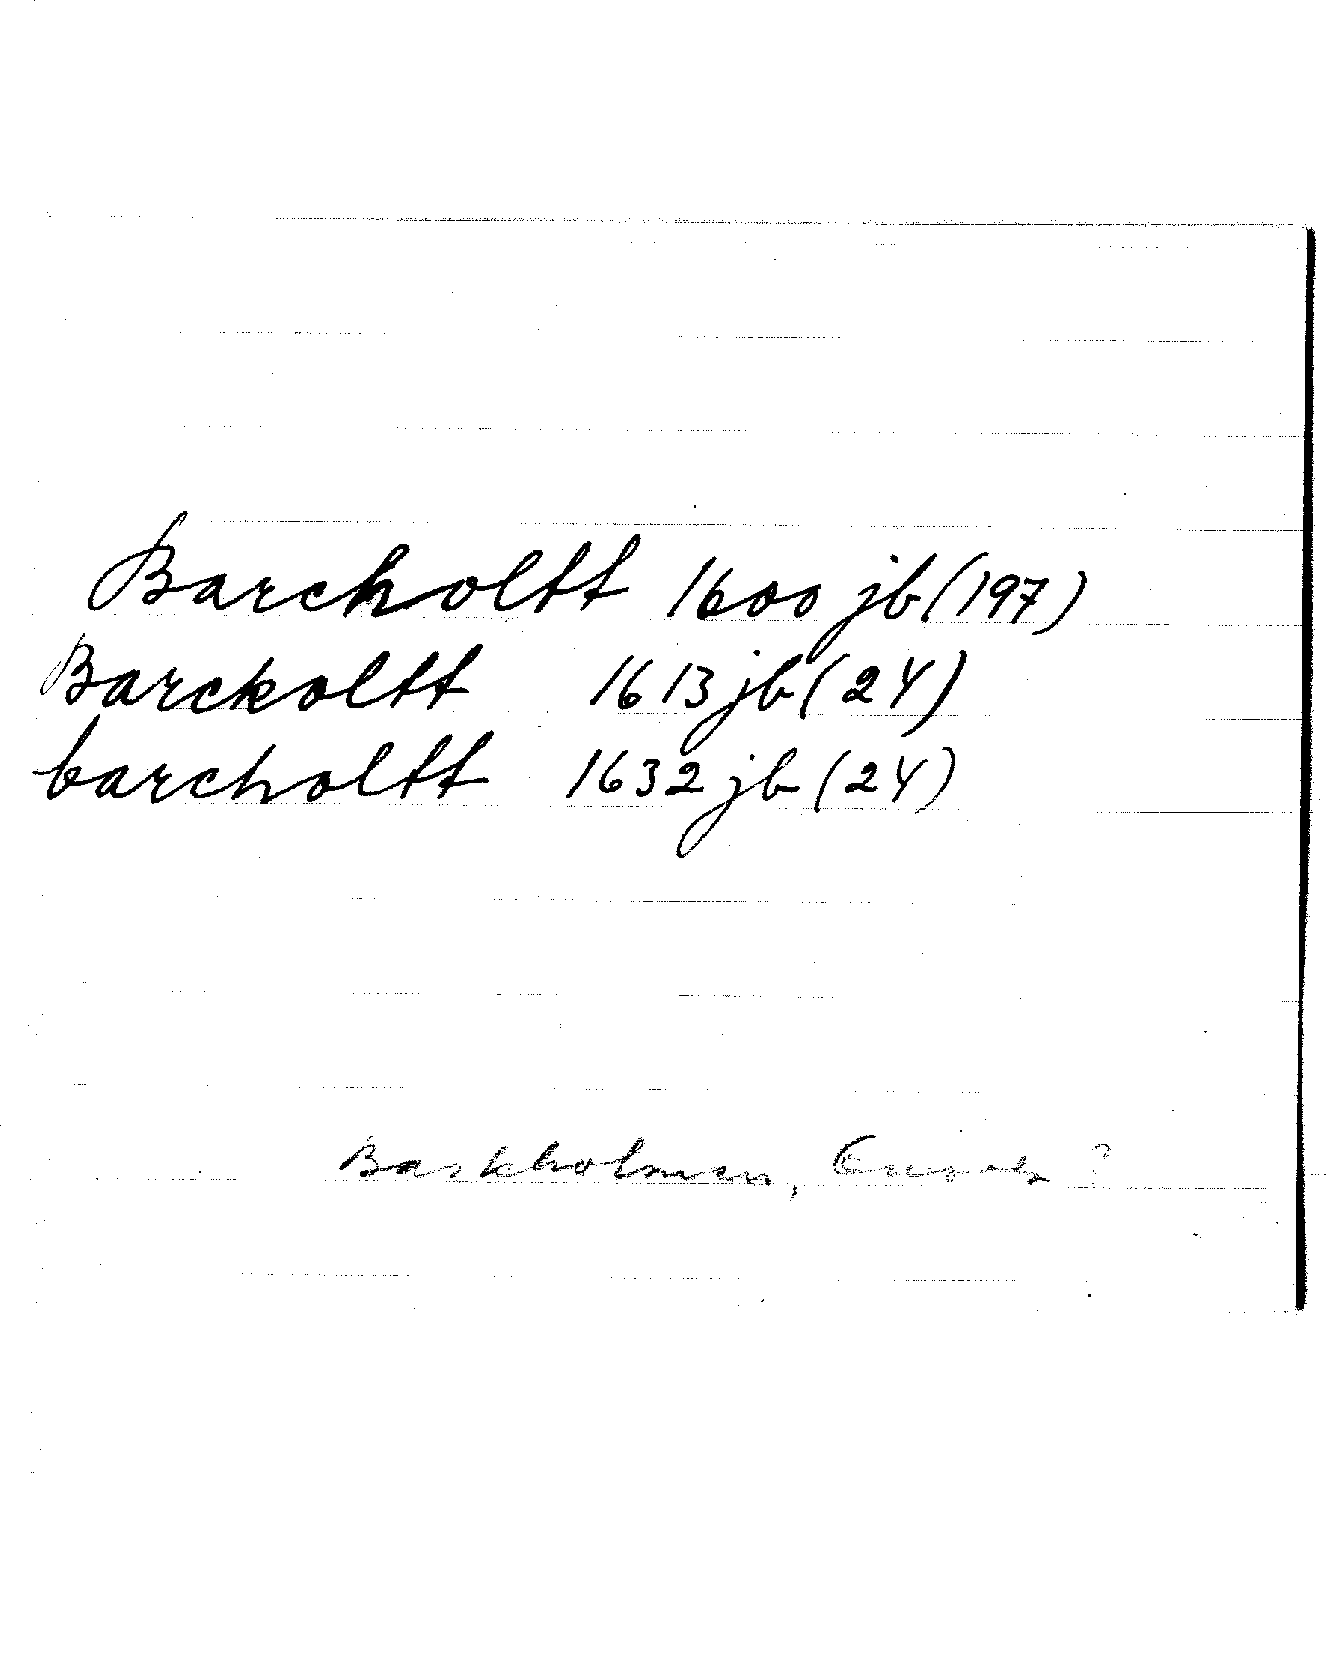 Barcholtt 1600 jb (197)
Barckoltt 1613 jb (24)
barcholtt 1632 jb (24)
Barkholmen, ?